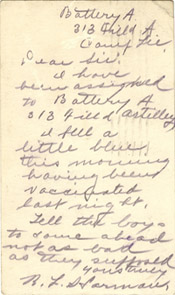 Battery A
313 Field A
Camp Lee
Dear Sir:
I have
been assigned
to Battery A
313 Field artillery
I feel a
little blue
this morning
having been
vaccinated
last night.
Tell the boys
to come ahead
not as bad
as they supposed
yours truly